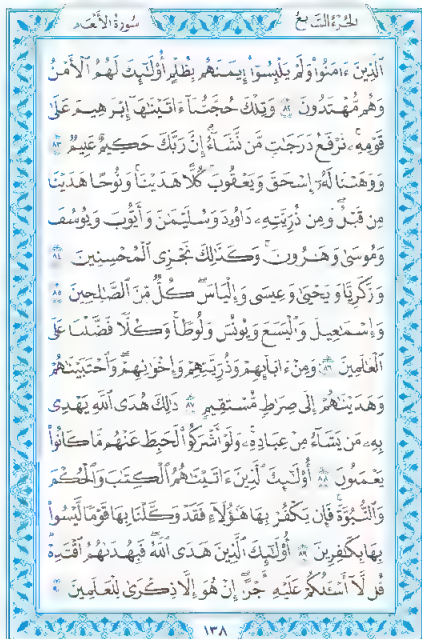 الجزء السابع سورة الأنعام
الَّذِينَ ءَامَنُوا۟ وَلَمْ يَلْبِسُوٓا۟ إِيمَـٰنَهُم بِظُلْمٍ أُو۟لَـٰٓئِكَ لَهُمُ الْأَمْنُ
وَهُم مُّهْتَدُونَ ٨٢ وَتِلْكَ حُجَّتُنَآ ءَاتَيْنَـٰهَآ إِبْرَٰهِيمَ عَلَىٰ
قَوْمِهِۦ نَرْفَعُ دَرَجَـٰتٍ مَّن نَّشَآءُ إِنَّ رَبَّكَ حَكِيمٌ عَلِيمٌ ٨٣
وَوَهَبْنَا لَهُۥٓ إِسْحَـٰقَ وَيَعْقُوبَ كُلًّا هَدَيْنَا وَنُوحًا هَدَيْنَا
مِن قَبْلُ وَمِن ذُرِّيَّتِهِۦ دَاوُۥدَ وَسُلَيْمَـٰنَ وَأَيُّوبَ وَيُوسُفَ
وَمُوسَىٰ وَهَـٰرُونَ وَكَذَٰلِكَ نَجْزِى الْمُحْسِنِينَ ٨٤
وَزَكَرِيَّا وَيَحْيَىٰ وَعِيسَىٰ وَإِلْيَاسَ كُلٌّ مِّنَ الصَّـٰلِحِينَ ٨٥
وَإِسْمَـٰعِيلَ وَالْيَسَعَ وَيُونُسَ وَلُوطًا وَكُلًّا فَضَّلْنَا عَلَى
الْعَـٰلَمِينَ ٨٦ وَمِنْ ءَابَآئِهِمْ وَذُرِّيَّـٰتِهِمْ وَإِخْوَٰنِهِمْ وَاجْتَبَيْنَـٰهُمْ
وَهَدَيْنَـٰهُمْ إِلَىٰ صِرَٰطٍ مُّسْتَقِيمٍ ٨٧ ذَٰلِكَ هُدَى اللَّهِ يَهْدِى
بِهِۦ مَن يَشَآءُ مِنْ عِبَادِهِۦ وَلَوْ أَشْرَكُوا۟ لَحَبِطَ عَنْهُم مَّا كَانُوا۟
يَعْمَلُونَ ٨٨ أُو۟لَـٰٓئِكَ الَّذِينَ ءَاتَيْنَـٰهُمُ الْكِتَـٰبَ وَالْحُكْمَ
وَالنُّبُوَّةَ فَإِن يَكْفُرْ بِهَا هَـٰٓؤُلَآءِ فَقَدْ وَكَّلْنَا بِهَا قَوْمًا لَّيْسُوا۟
بِهَا بِكَـٰفِرِينَ ٨٩ أُو۟لَـٰٓئِكَ الَّذِينَ هَدَى اللَّهُ فَبِهُدَىٰهُمُ اقْتَدِهْ
قُل لَّآ أَسْـَٔلُكُمْ عَلَيْهِ أَجْرًا إِنْ هُوَ إِلَّا ذِكْرَىٰ لِلْعَـٰلَمِينَ ٩٠
١٣٨